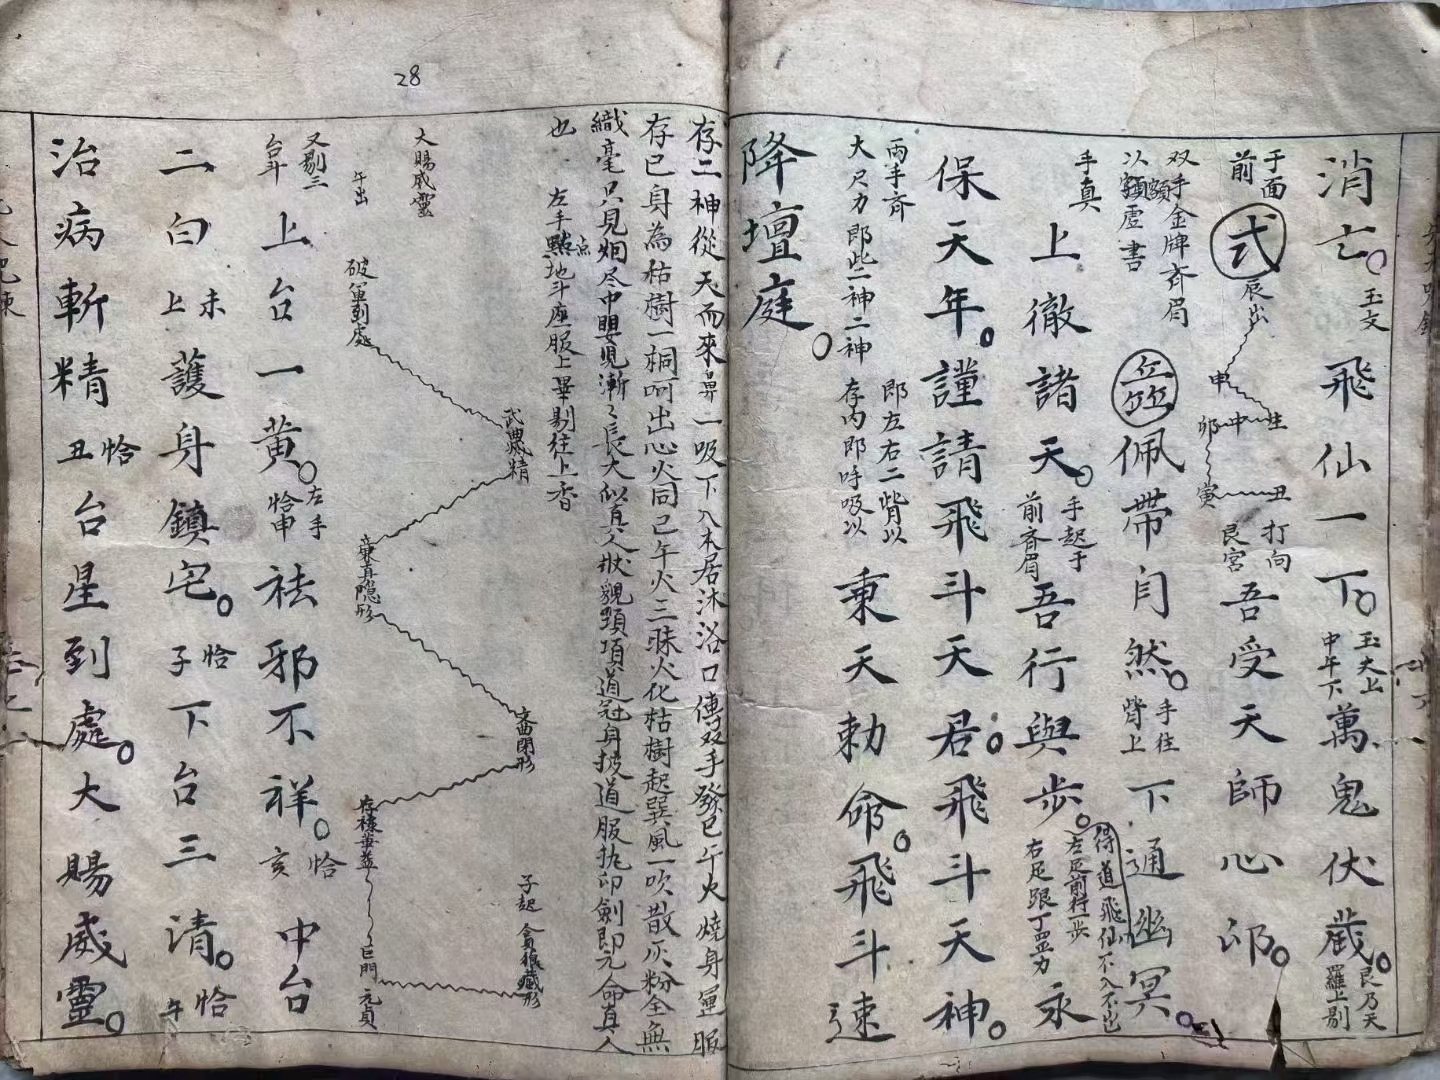 消亡。玉文飛仙一下。玉大上中午下萬鬼伏藏。艮乃天羅上剔
于面前
辰出
申
生
中
卯
寅
丑
打向艮宮
吾受天師心印。
双手金牌斉眉以額虛書
佩帶自然。手往背上下通幽冥。
得道飛仙不入不出
手真
上徹諸天。手起于前斉眉吾行與步。左足前行一步右足跟丁罡力永
保天年。謹請飛斗天君。飛斗天神。
兩手斉大尺力即此二神二神
即左右二背以存内即呼吸以
秉天勅命。飛斗速
降壇庭。
存二神從天而來鼻一吸下入本居沐浴口傳双手發已午火燒身運服
存已身為枯樹一桐呵出心火同已午火三昧火化枯樹起巽風一吹散灰粉全無
織毫只見烟尽中嬰児漸々長大似真人狀貌頸項道冠身披道服执印劍即元命真人
也 左手點点地斗座服上畢剔往上香
28
大賜威靈
午出
破軍到處
武曲滅精
廉真隱形
文曲閉形
存禄華益
巨門
元貞
子起
貪狼藏形
又剔三台斗
上台一黃。左手恰申祛邪不祥。恰亥中台
二白未上護身鎮宅。恰子下台三清。恰午
治病斬精恰丑台星到處。大賜威靈。